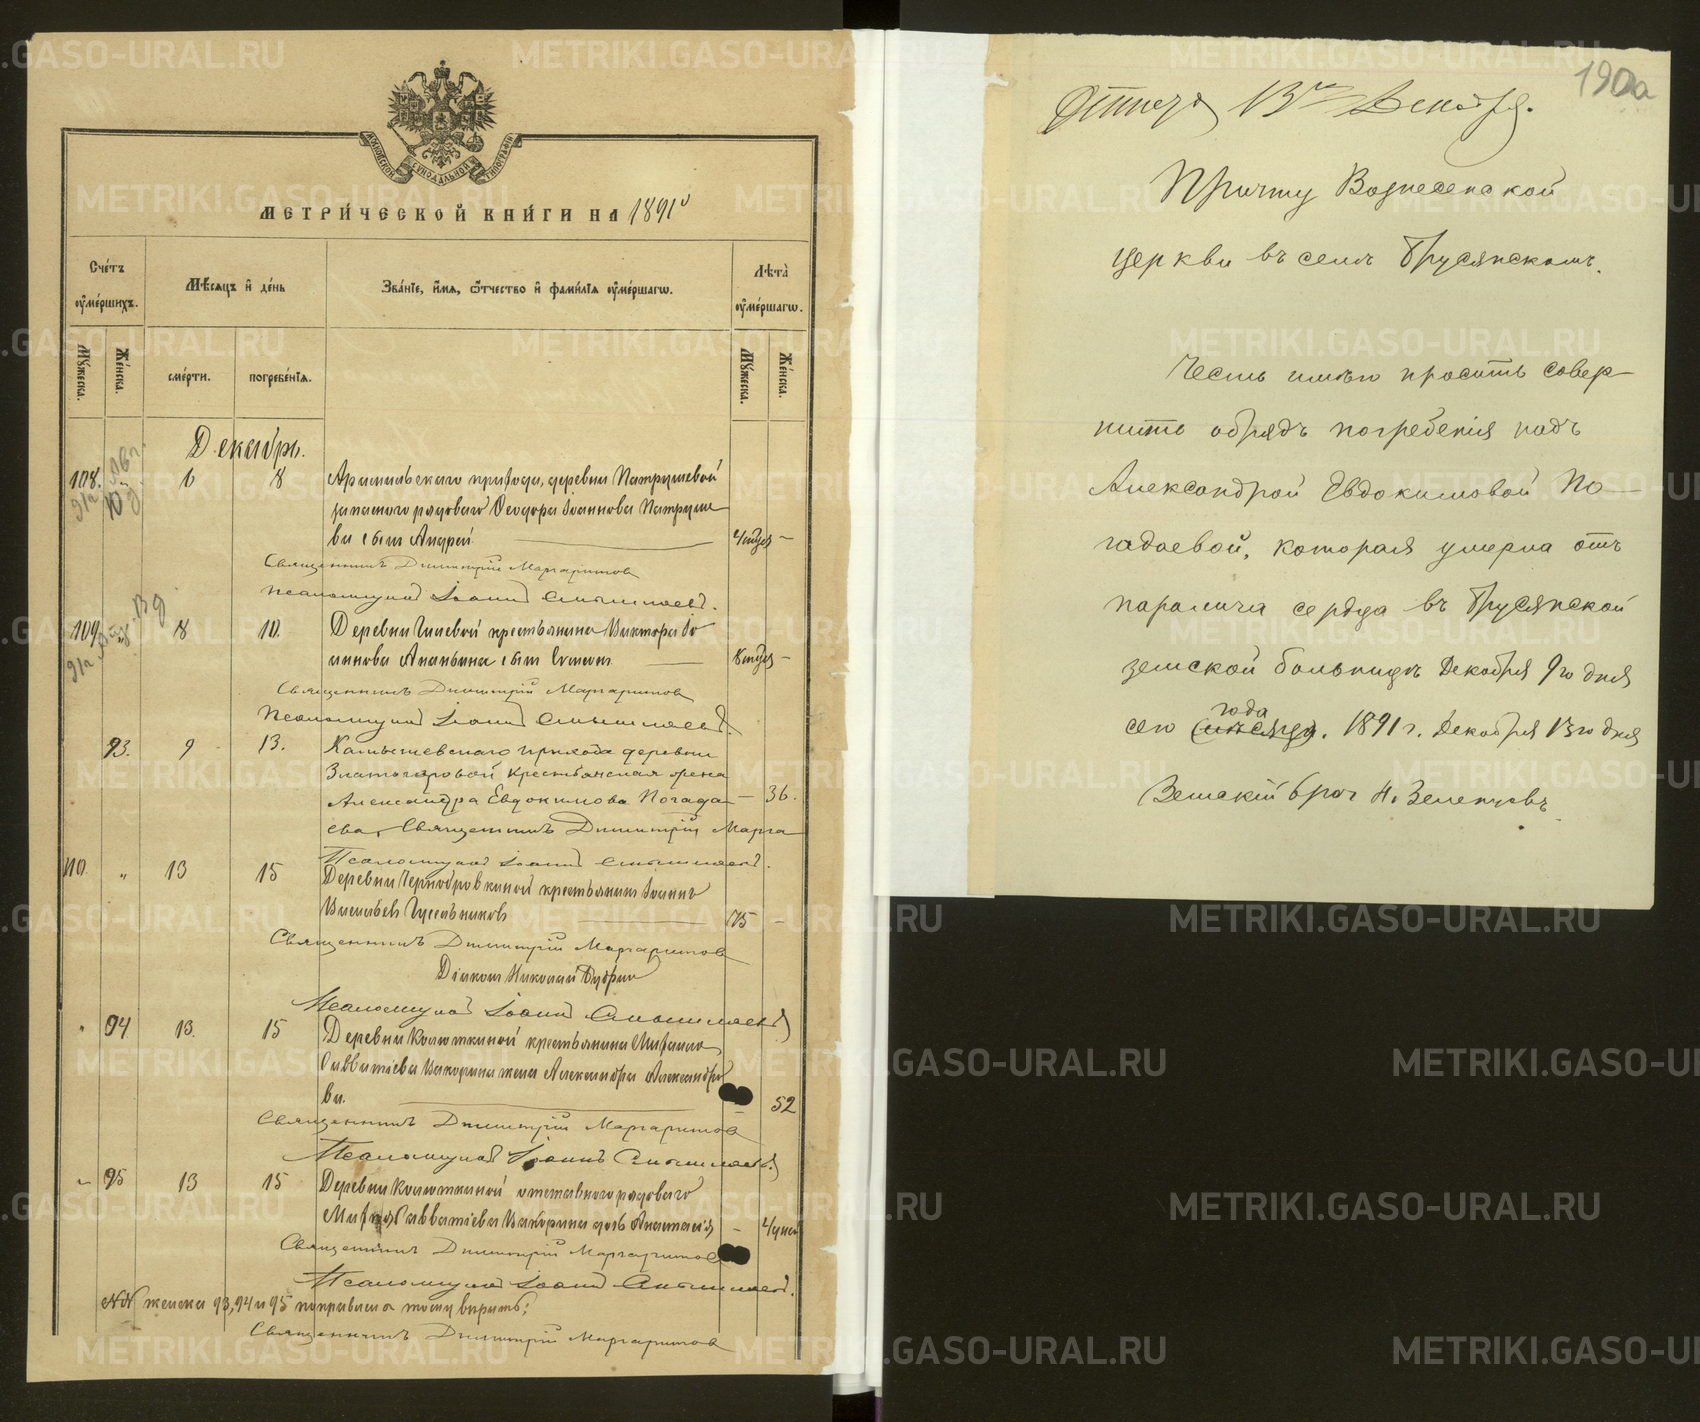 МОСКОВСКОЙ СѴНОДАЛЬНОЙ ТИПОГРАФІИ
МЕТРИ́ЧЕСКОЙ КНИ́ГИ НА 1891й
Сче́тъ ᲂу҆ме́ршихъ.
Мѣ́сяцъ и҆ де́нь
Зва́нїе, и҆́мѧ, ѻ҆́тчество и҆ фами́лїѧ ᲂу҆ме́ршагѡ.
Лѣта̀ ᲂу҆ме́ршагѡ.
Мꙋ́жеска.
Же́нска.
сме́рти.
погребе́нїѧ.
Мꙋ́жеска.
Же́нска.
Декабрь.
108. 6 8 Арамильскаго прихода, деревни Патрушевой
запаснаго рядоваго Ѳеодора Іоаннова Патруше
ва сынъ Андрей —
Священникъ Димитрій Маргаритовъ
Псаломщикъ Іоаннъ Смышляевъ.
109 " 8 10. Деревни крестьянина Виктора Іо
аннова Ананьина сынъ —
Священникъ Димитрій Маргаритовъ
Псаломщикъ Іоаннъ Смышляевъ
93. 9 13. Камышевскаго прихода деревни
Златогоровой крестьянская жена
Александра Евдокимова Погада — 36.
ева, Священникъ Димитрій Марга
Псаломщикъ Іоаннъ Смышляевъ.
110 " 13 15 Деревни Чернобровкиной крестьянинъ Іоаннъ
Васильевъ 75 —
Священникъ Димитрій Маргаритовъ
Діаконъ Николай
Псаломщикъ Іоаннъ Смышляевъ
" 94 13. 15 Деревни Колюткиной крестьянина Михаила
Савватіева жена Александра Александро
ва. — 52
Священникъ Димитрій Маргаритовъ
Псаломщикъ Іоаннъ Смышляевъ
" 95 13 15 Деревни Колюткиной отставнаго рядоваго
Савватіева дочь Анастасія — 4 дней
Священникъ Димитрій Маргаритовъ
Псаломщикъ Іоаннъ Смышляевъ.
№№ женска 93, 94 и 95 поправлено тому вѣрить:
Священникъ Димитрій Маргаритовъ
190а
13го Декабря.
Причту Вознесенской
церкви въ селѣ Брусянскомъ.
Честь имѣю просить совер-
шить обрядъ погребенія надъ
Александрой Евдокимовой По-
гадаевой, которая умерла отъ
паралича сердца въ Брусянской
земской больницѣ Декабря 9го дня
сего года мѣсяца. 1891 г. Декабря 13го дня
Земскій врач Н. Зеленцовъ
METRIKI.GASO-URAL.RU